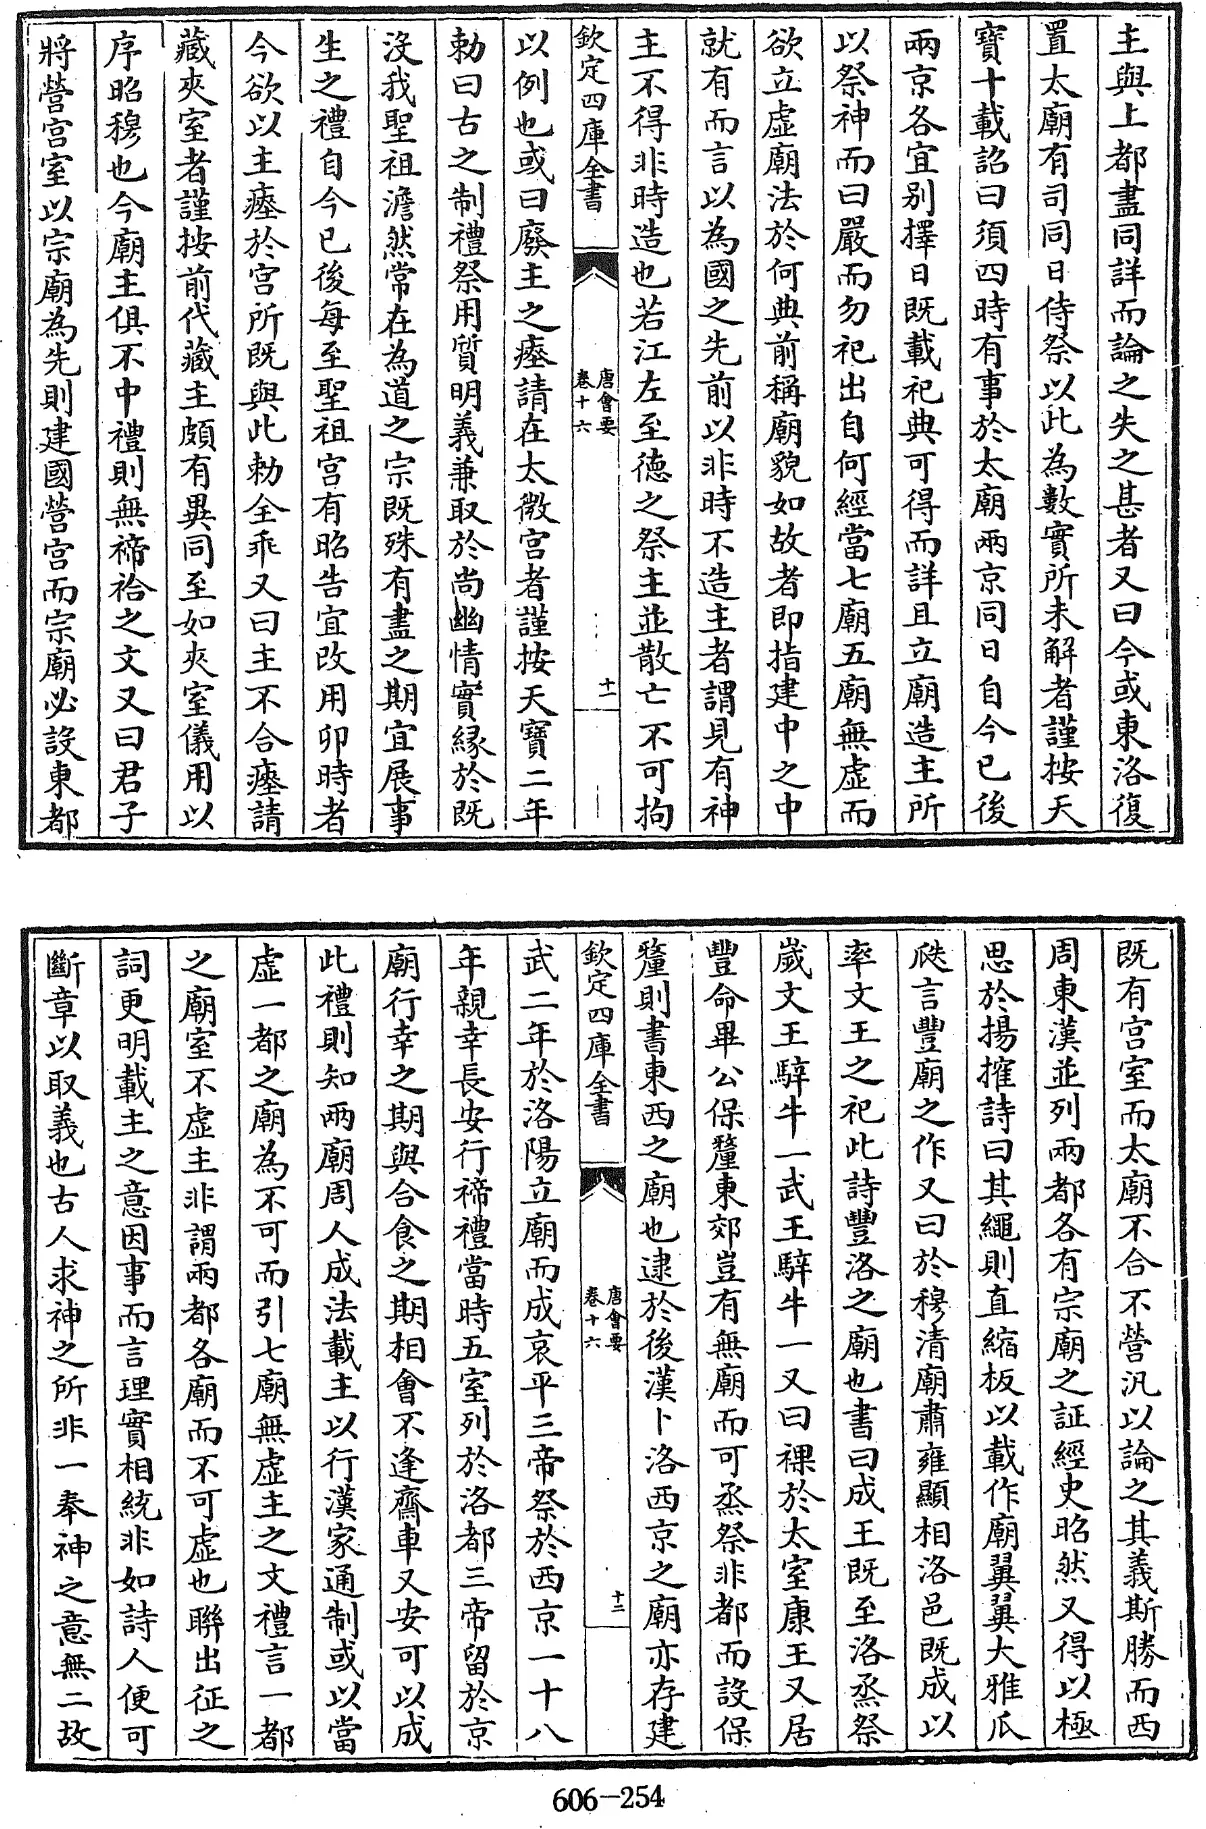 主與上都盡同詳而論之失之甚者又曰今或東洛復
置太廟有司同日侍祭以此為數實所未解者謹按天
寶十載詔曰須四時有事於太廟兩京同日自今已後
兩京各宜别擇日既載祀典可得而詳且立廟造主所
以祭神而曰嚴而勿祀出自何經當七廟五廟無虚而
欲立虚廟法於何典前稱廟貌如故者即指建中之中
就有而言以為國之先前以非時不造主者謂見有神
主不得非時造也若江左至德之祭主並散亡不可拘
欽定四庫全書
唐會要
卷十六
十一
以例也或曰廢主之瘞請在太微宫者謹按天寶二年
勅曰古之制禮祭用質明義兼取於尚幽情實緣於既
沒我聖祖澹然常在為道之宗既殊有盡之期宜展事
生之禮自今已後每至聖祖宫有昭告宜改用卯時者
今欲以主瘞於宫所既與此勅全乖又曰主不合瘞請
藏夾室者謹按前代藏主頗有異同至如夾室儀用以
序昭穆也今廟主俱不中禮則無禘祫之文又曰君子
將營宫室以宗廟為先則建國營宫而宗廟必設東都
既有宫室而太廟不合不營汎以論之其義斯勝而西
周東漢並列兩都各有宗廟之証經史昭然又得以極
思於揚搉詩曰其繩則直縮板以載作廟翼翼大雅瓜
瓞言豐廟之作又曰於穆清廟肅雍顯相洛邑既成以
率文王之祀此詩豐洛之廟也書曰成王既至洛烝祭
嵗文王騂牛一武王騂牛一又曰裸於太室康王又居
豐命畢公保釐東郊豈有無廟而可烝祭非都而設保
釐則書東西之廟也逮於後漢卜洛西京之廟亦存建
欽定四庫全書
唐會要
卷十六
十二
武二年於洛陽立廟而成哀平三帝祭於西京一十八
年親幸長安行禘禮當時五室列於洛都三帝留於京
廟行幸之期與合食之期相會不逢齋車又安可以成
此禮則知兩廟周人成法載主以行漢家通制或以當
虚一都之廟為不可而引七廟無虚主之文禮言一都
之廟室不虚主非謂兩都各廟而不可虚也聨出征之
詞更明載主之意因事而言理實相統非如詩人便可
斷章以取義也古人求神之所非一奉神之意無二故
606-254